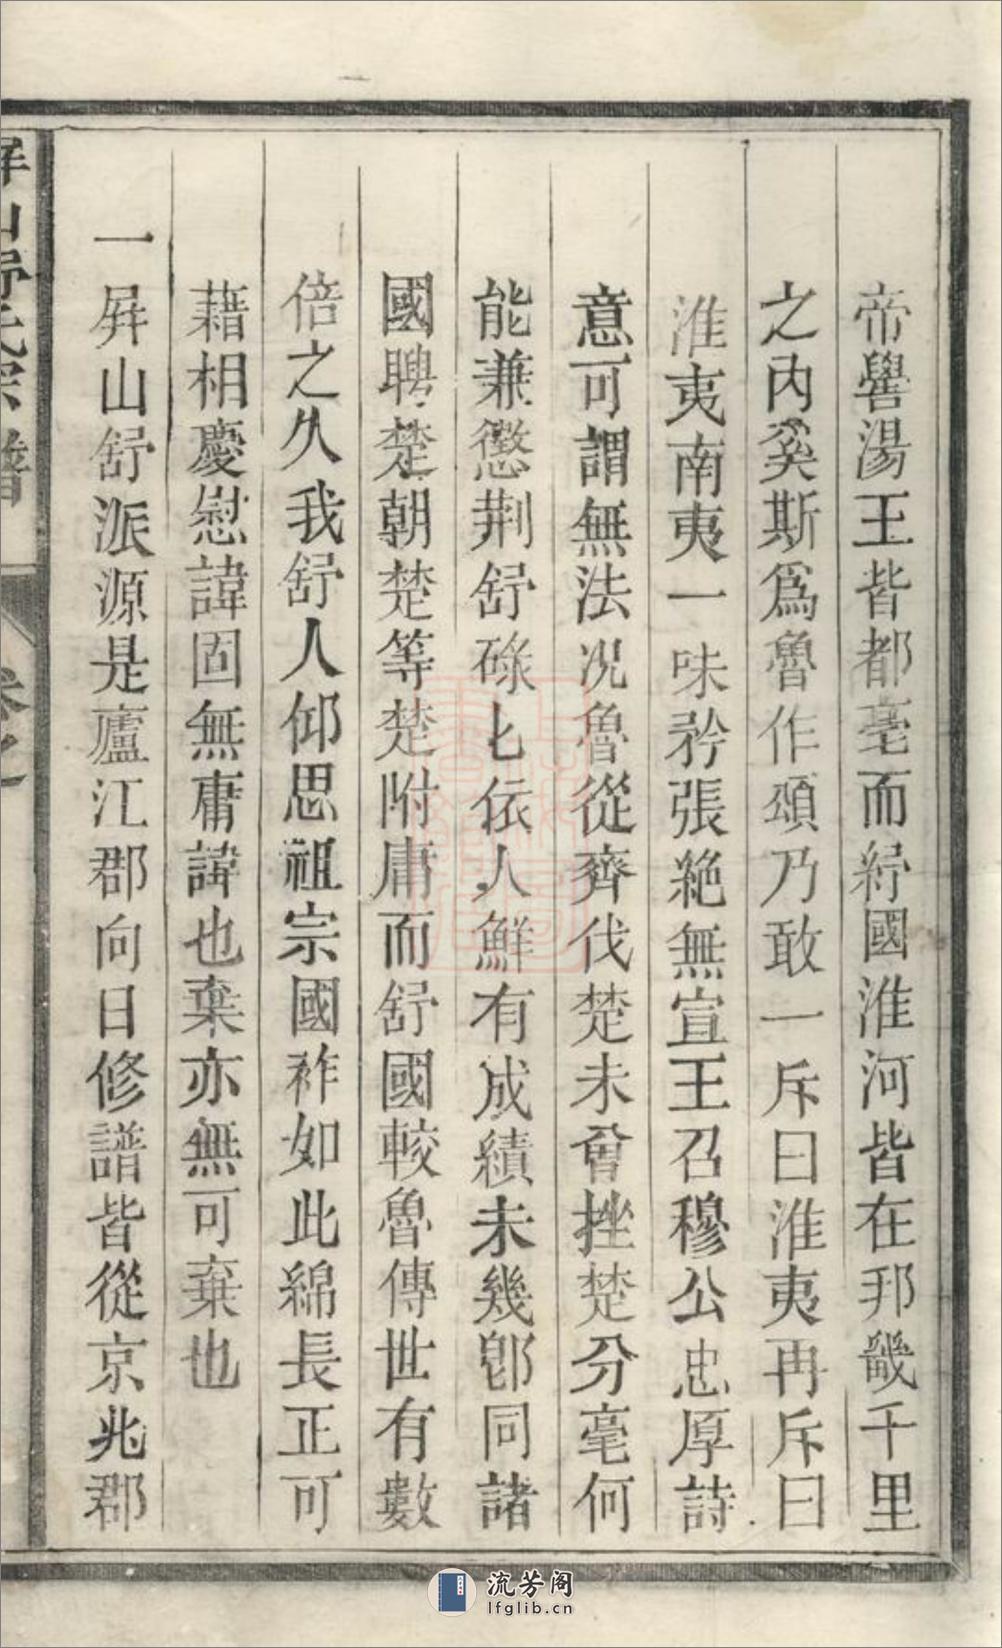 帝嚳湯王皆都亳而紓國淮河皆在邦畿千里
之內奚斯爲魯作頌乃敢一斥曰淮夷再斥曰
淮夷南夷一味矜張絕無宣王召穆公忠厚詩
意可謂無法況魯從齊伐楚未曾挫楚分毫何
能兼懲荆舒碌匕依人鮮有成績未幾卽同諸
國聘楚朝楚等楚附庸而舒國較魯傳世有數
倍之久我舒人仰思祖宗國祚如此綿長正可
藉相慶慰諱固無庸諱也棄亦無可棄也
一屛山舒派源是廬江郡向日修譜皆從京兆郡
屛山舒氏宗譜
卷之
流芳阁
lfglib.cn